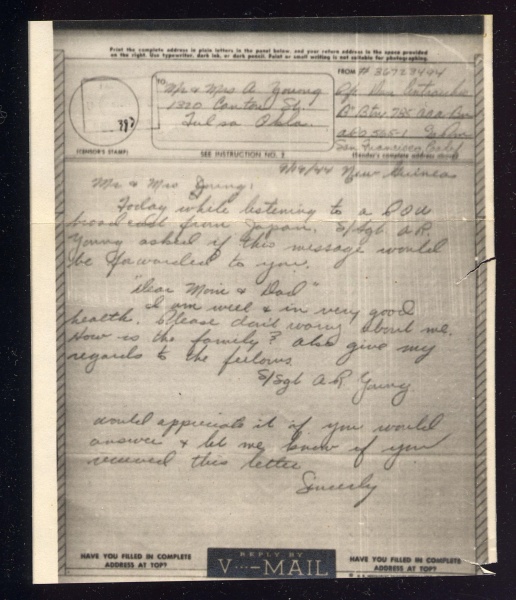 Print the complete address in plain letters in the panel below, and your return address in the space provided
on the right. Use typewriter, dark ink, or dark pencil. Faint or small writing is not suitable for photographing.
TO:
Mr & Mrs A. Young
1320 Canton St.
Tulsa Okla.
FROM # 36727494
Btry 725
APO 565-1
San Francisco Calif
397
(CENSOR'S STAMP)
SEE INSTRUCTION NO. 2
(Sender's complete address above)
New Guinea
Mr & Mrs Young:
Today while listening to a POW
broadcast from Japan, S/Sgt A.R.
Young asked if this message would
be forwarded to you.
"Dear Mom & Dad"
I am well & in very good
health. Please don't worry about me.
How is the family? Also give my
regards to the fellows
S/Sgt A.R Young
would appreciate it if you would
answer & let me know if you
received this letter
Sincerly
HAVE YOU FILLED IN COMPLETE
ADDRESS AT TOP?
REPLY BY
V···—MAIL
HAVE YOU FILLED IN COMPLETE
ADDRESS AT TOP?